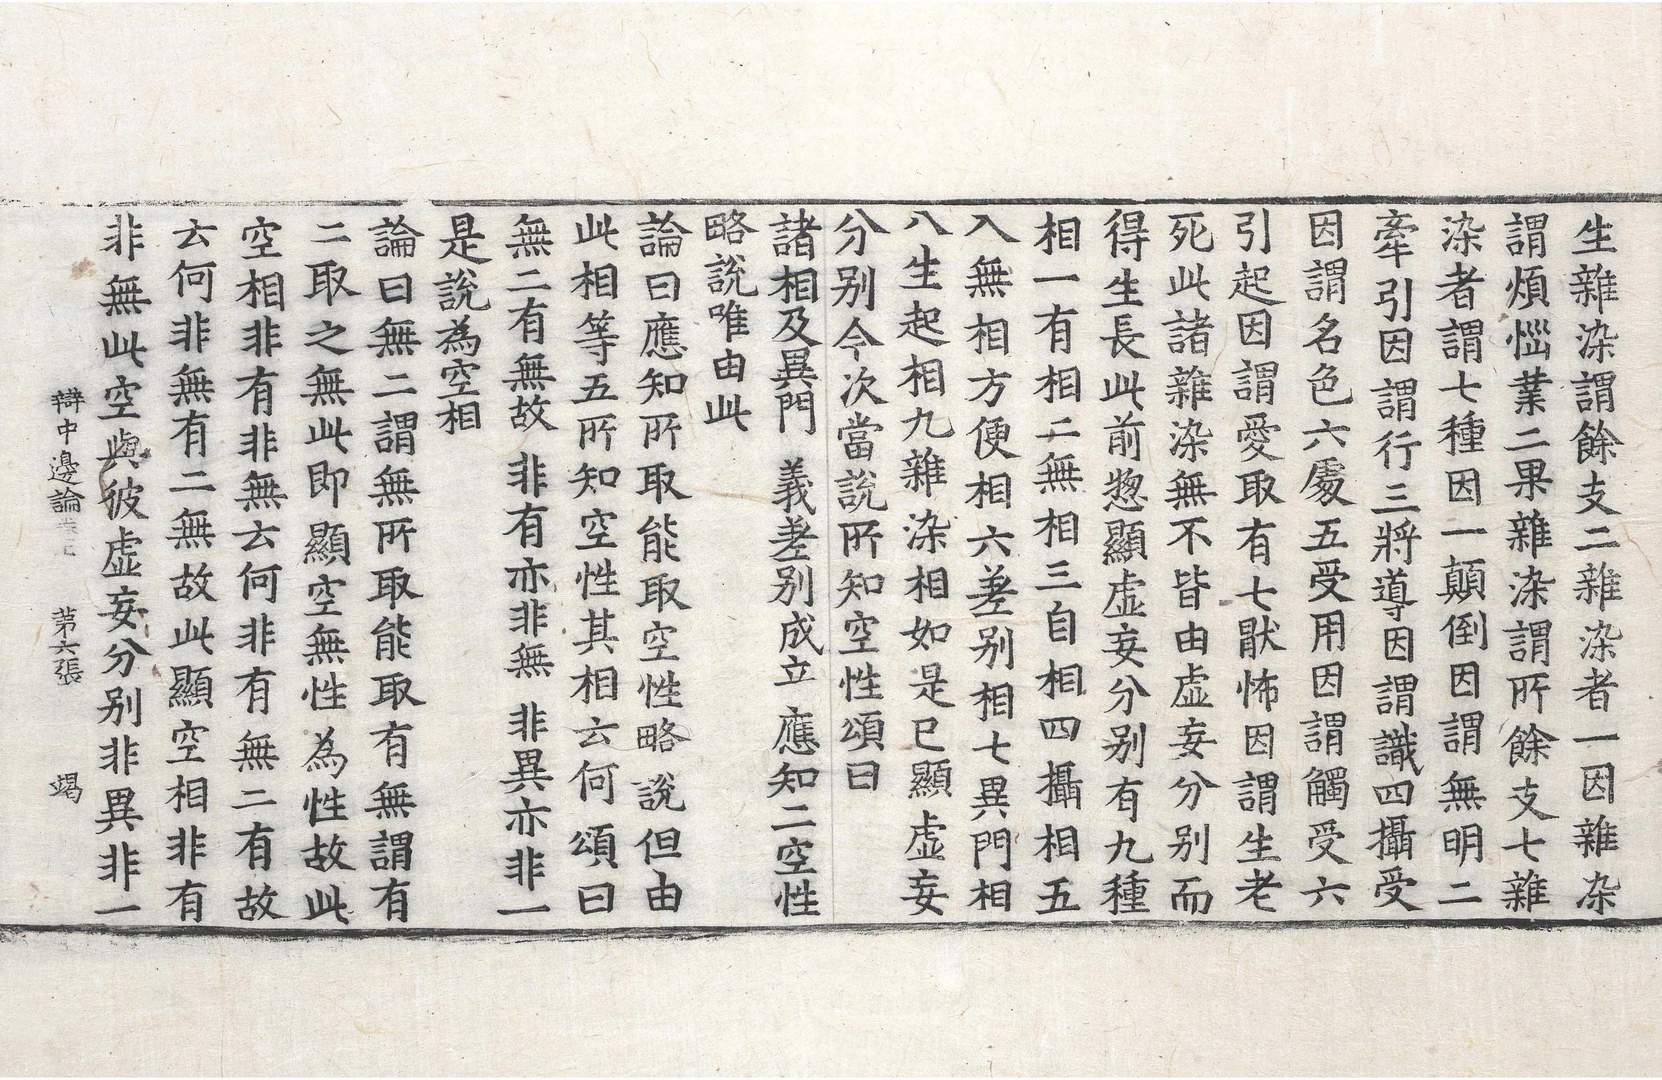 生雜染謂餘支二雜染者一因雜染
謂煩惱業二果雜染謂所餘支七雜
染者謂七種因一顛倒因謂無明二
牽引因謂行三將導因謂識四攝受
因謂名色六處五受用因謂觸受六
引起因謂愛取有七猒怖因謂生老
死此諸雜染無不皆由虛妄分別而
得生長此前惣顯虛妄分別有九種
相一有相二無相三自相四攝相五
入無相方便相六差別相七異門相
八生起相九雜染相如是已顯虛妄
分別今次當說所知空性頌曰
諸相及異門 義差別成立 應知二空性
略說唯由此
論曰應知所取能取空性略說但由
此相等五所知空性其相云何頌曰
無二有無故 非有亦非無 非異亦非一
是說為空相
論曰無二謂無所取能取有無謂有
二取之無此即顯空無性為性故此
空相非有非無云何非有無二有故
云何非無有二無故此顯空相非有
非無此空與彼虛妄分別非異非一
辯中邊論卷上 第六張 竭